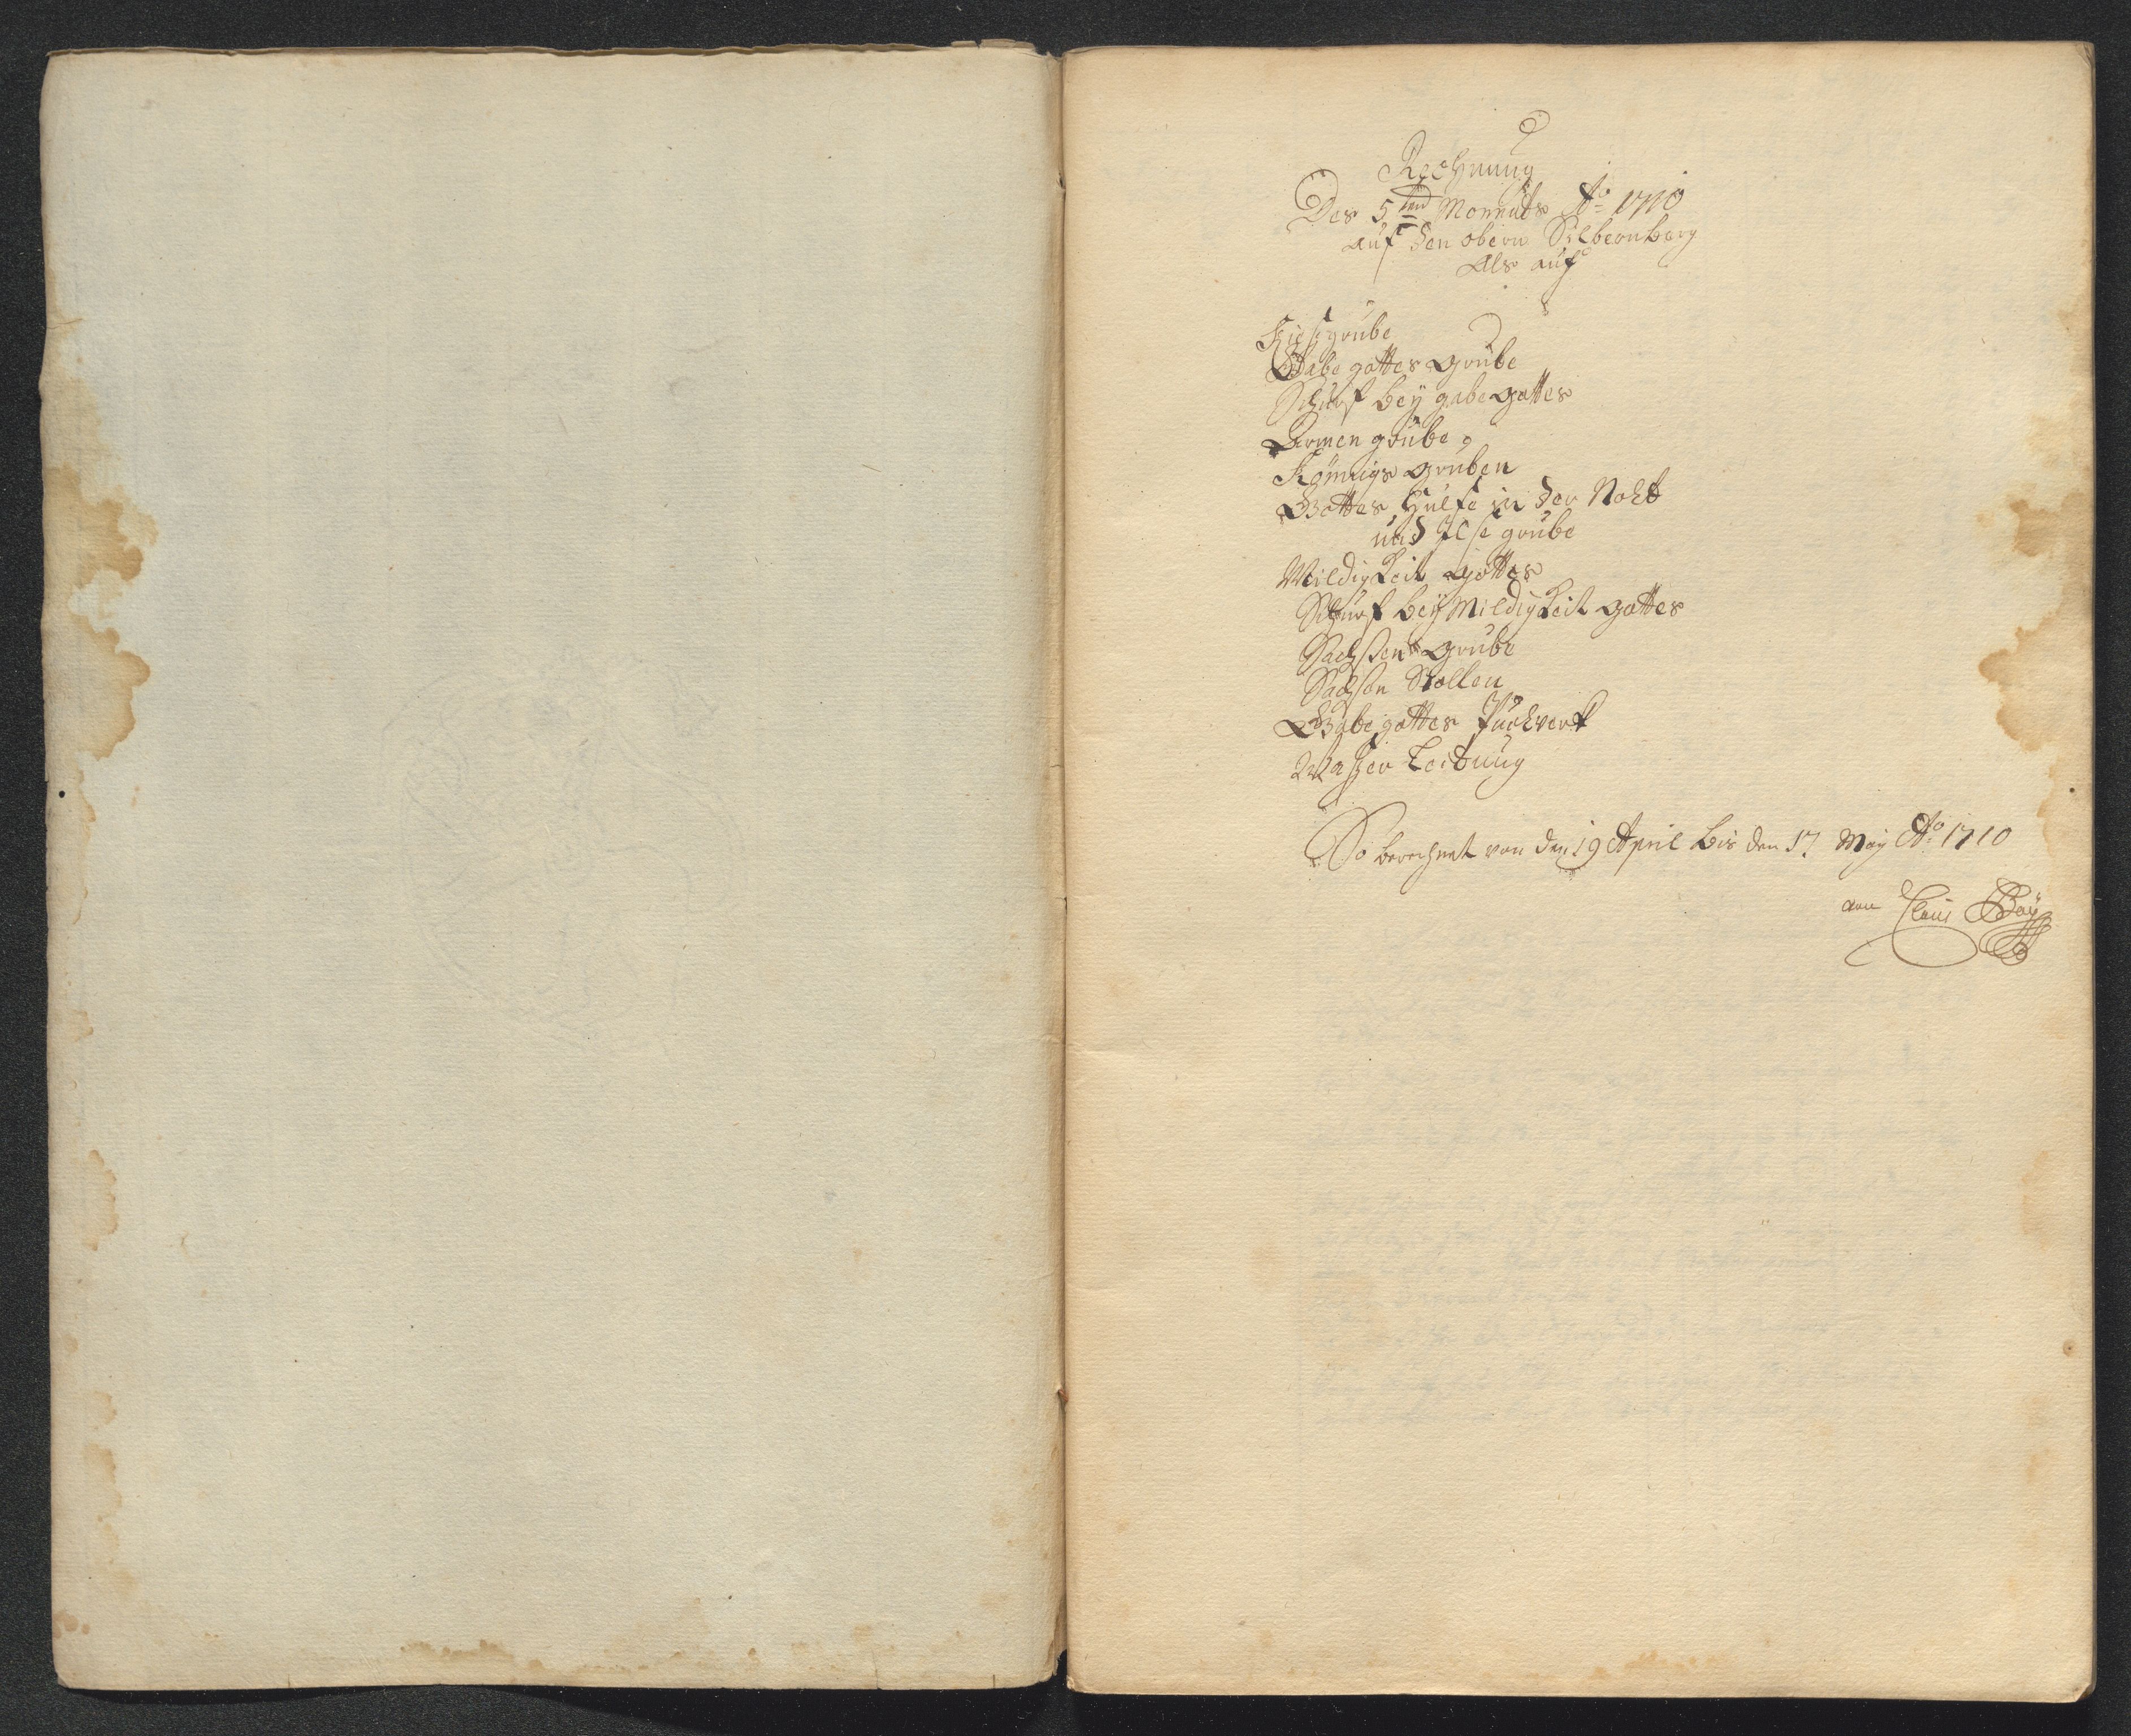 Rechnung
Des 5ten Monnats Ao 1710
auf den obern Silbernberg
Als auf
Kießgrube
Gabe gottes Grube
Schurf beÿ gabe gottes
Armen grube
Königs Gruben
Gottes Hülfe in der Noht
und Ilse grube
Mildigkeit gottes
Schurf beÿ Mildigkeit gottes
Sachsen Grube
Sachsen Stollen
Gabe gottes Puchwerk
Waßer Leitung
So berechnet von den 19 April bis den 17 Maÿ Ao 1710
von Claus Baÿ